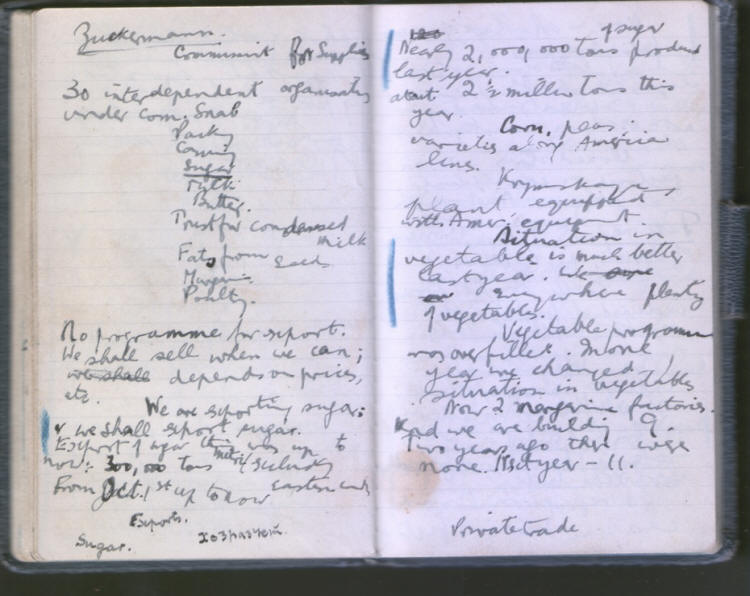 Zuckermann.
Commissariat for Supplies
30 interdependent organisations
under com. Snab
Packing
Canning
Sugar
Milk
Butter.
Trust for condensed
milk
Fats, from seeds
Margarine
Poultry.
No programme for export.
We shall sell when we can;
we shall depends on prices,
etc.
We are exporting sugar;
& we shall export sugar.
Export of sugar this was up to
now: 300,000 tons metric
From Oct. 1st up to now eastern
Exports.
Sugar.
120 of sugar
Nearly 2,000,000 tons produced
last year.
about 2 1/2 million tons this
year.
Corn, peas.
varieties along America
lines.
plant equipped
with Amer. equipment.
Situation in
vegetable is much better
last year. We
everywhere plenty
of vegetables.
Vegetable programme
was overfilled. In one
year we changed
situation in vegetables
Now 2 margarine factories.
And we are building 9.
Two years ago there were
none. Next year - 11.
Private trade